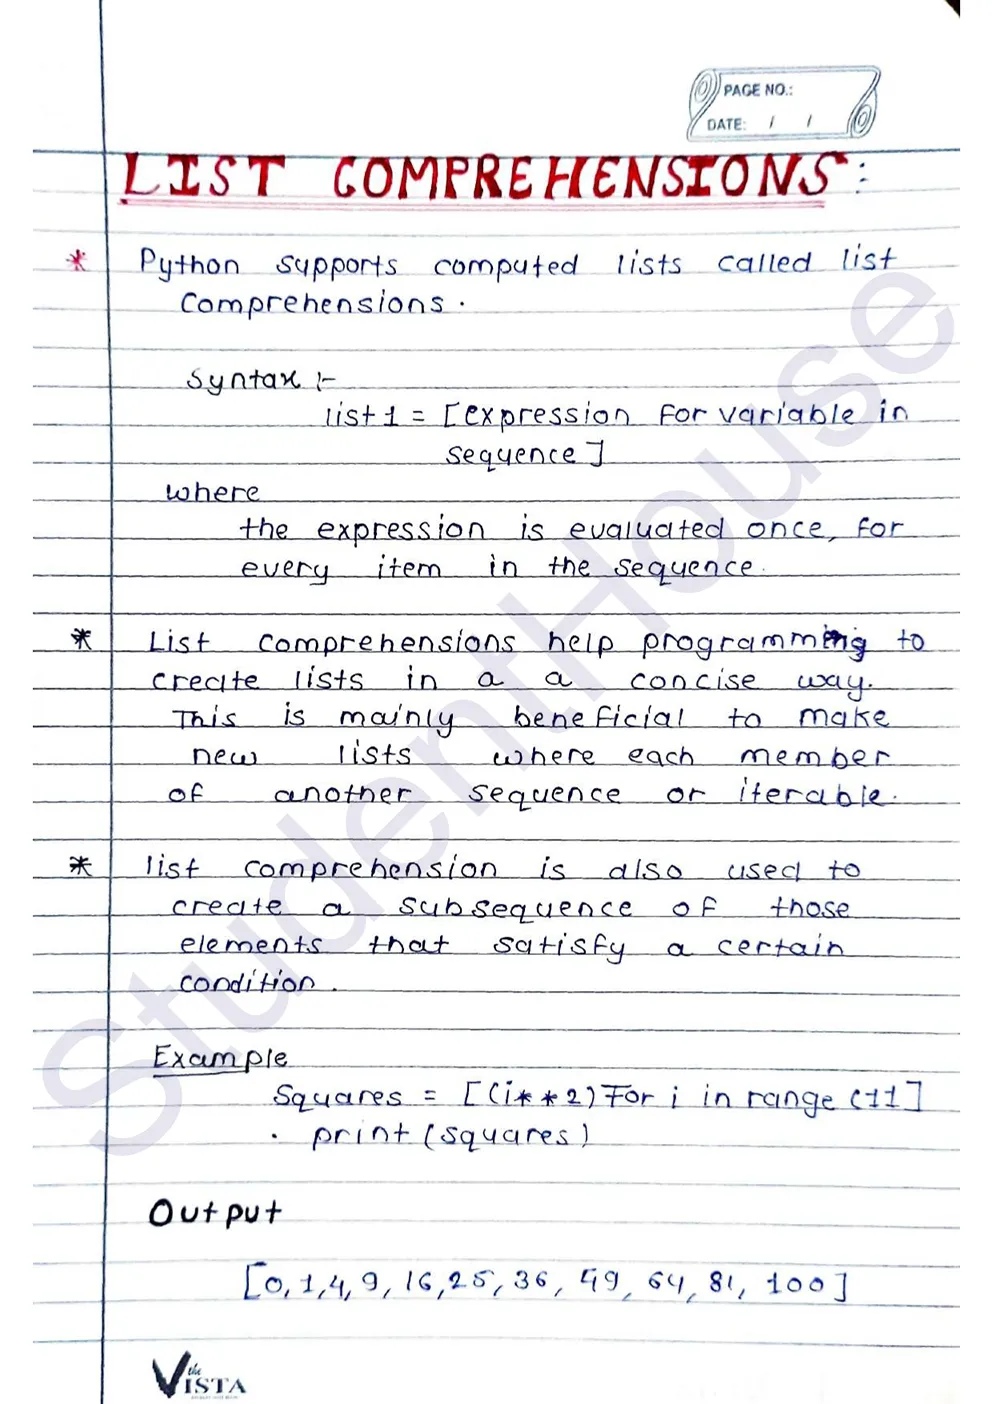 PAGE NO.:
DATE: / /
LIST COMPREHENSIONS :
* Python supports computed lists called list
Comprehensions .
Syntax :-
list1 = [expression for variable in
sequence]
where
the expression is evaluated once, for
every item in the sequence.
* List comprehensions help programming to
create lists in a a concise way.
This is mainly beneficial to make
new lists where each member
of another sequence or iterable.
* list comprehension is also used to
create a subsequence of those
elements that satisfy a certain
condition .
Example
Squares = [(i**2) For i in range (11]
. print (squares)
Output
[0, 1, 4, 9, 16, 25, 36, 49, 64, 81, 100]
the
VISTA
StudentHouse